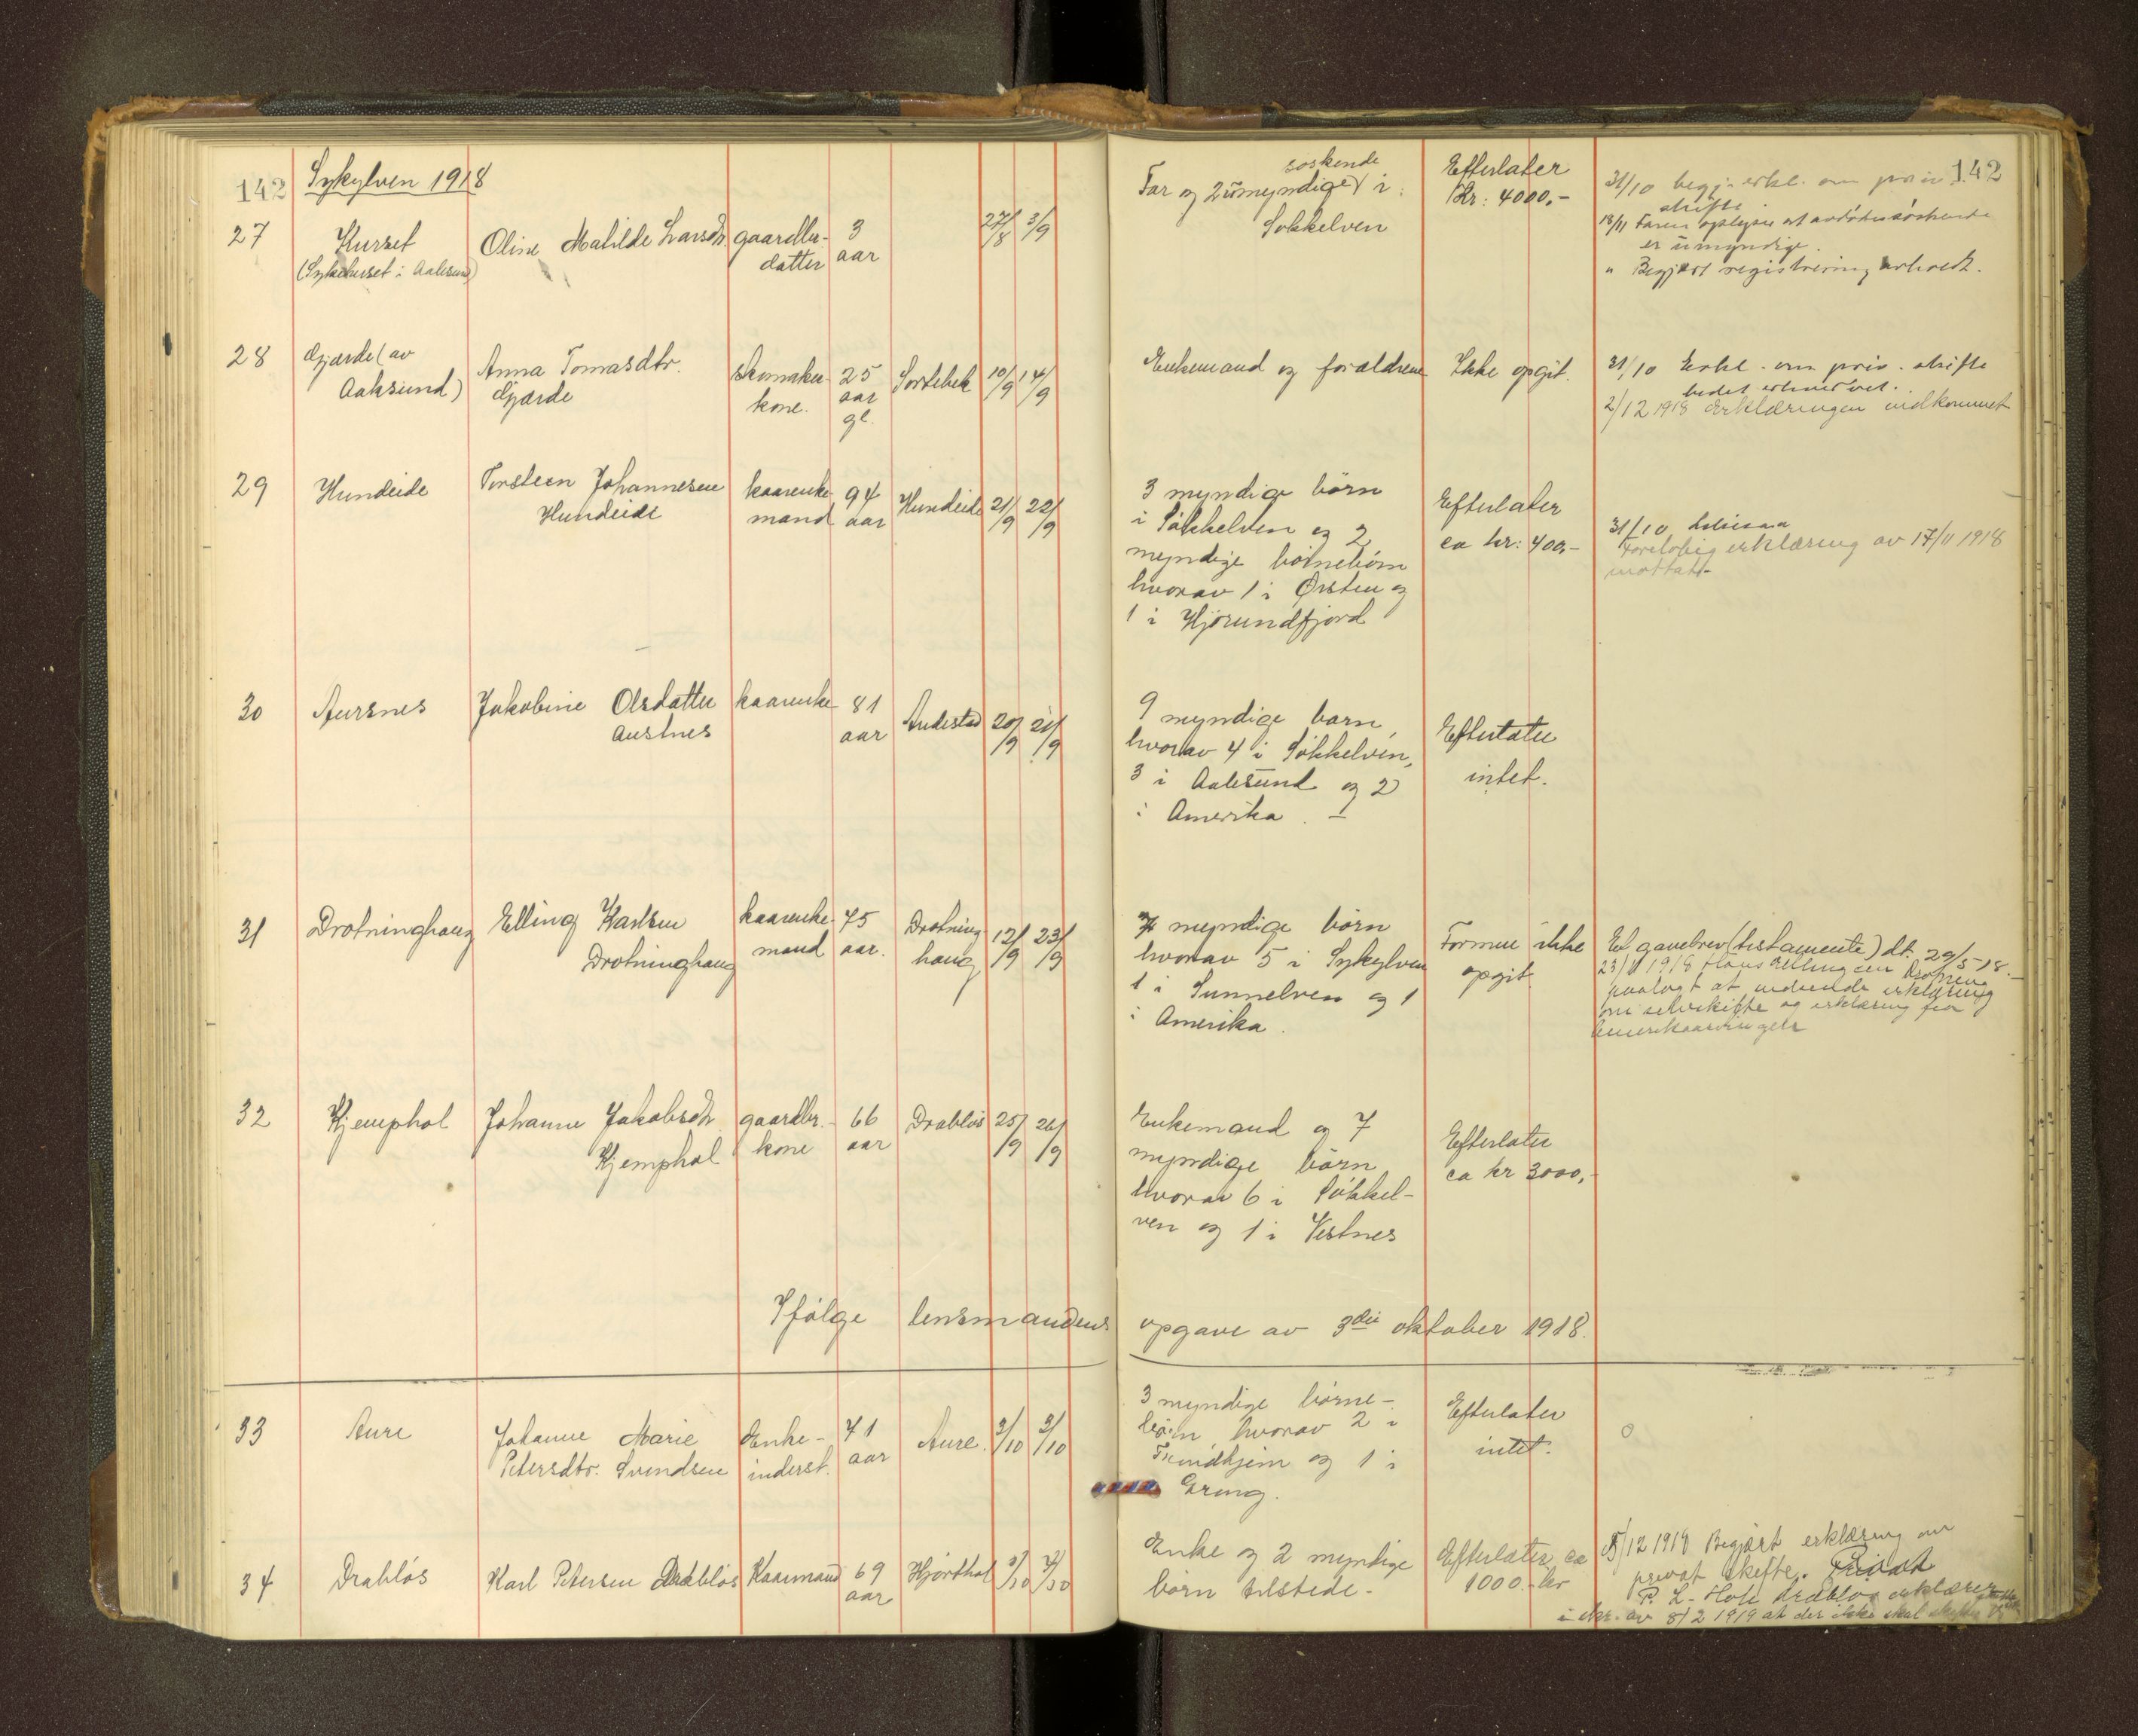 142 Sykylven 1918
142
27 Kurset Oline Mahilde Larsdtr. gaardbr.- 3 27/8 3/9
(Sykehuset i Aalesund) datter aar
Far og 2 umyndige søskende i
Søkkelven
Efterlater
Kr: 4000,-
31/10 begj. erkl. om priv.
skifte.
18/11 Faren oplyser at avdødes søskende
er umyndige.
" Begjært registrering avholdt.
28 Gjærde (av Anna Tomasdtr. skomaker- 25 Sortebek 10/9 14/9
Aalesund) Gjærde kone. aar
gl.
Enkemand og forældrene Ikke opgit.
31/10 Erkl. om priv. skifte
bedet erhvervet.
2/12 1918 Erklæringen indkommet
29 Hundeide Torsteen Johannesen kaarenke- 94 Hundeide 21/9 22/9
Hundeide mand aar
3 myndige børn
i Søkkelven og 2
myndige børnebørn
hvorav 1 i Ørsten og
1 i Hjørundfjord
Efterlater
ca kr: 400,-
31/10
Foreløbig erklæring av 17/11 1918
mottatt
30 Aursnes Jakobine Olsdatter kaarenke 81 Andestad 20/9 21/9
Aurnes aar
9 myndige barn,
hvorav 4 i Søkkelven,
3 i Aalesund og 2
i Amerika. -
Efterlater
intet.
31 Drotninghaug Elling Karlsen kaarenke- 75 Drotning 12/9 23/9
Drotninghaug mand aar. haug
7 myndige børn
hvorav 5 i Sykylven
1 i Sunnelven og 1
i Amerika.
Formue ikke
opgit
Et gavebrev (testamente) dt. 29/5 18.
23/11 1918 Hans Ellingsen Drotning
paalagt at indsende erklæring
om selvskifte og erklæring fra
Amerikaarvingen
32 Kjemphol Johanne Jakobsdtr. gaardbr.- 66 Drabløs 25/9 26/9
Kjemphol kone aar
Enkemand og 7
myndige børn
hvorav 6 i Søkkel-
ven og 1 i Vestnes
Efterlater
ca kr 3000,-
Ifølge lensmandens opgave av 3die oktober 1918.
33 Aure Johanne Marie Enke- 71 Aure. 2/10 3/10
Petersdtr. Svendsen inderst. aar
3 myndige børne-
børn hvorav 2 i
Trondhjem og 1 i
Grong.
Efterlater
intet.
0
34 Drabløs Karl Petersen Drabløs Kaarmand 69 Hjørthol 3/10 4/10
aar
Enke og 2 myndige
børn tilstede.-
Efterlater ca
1000.- kr
5/12 1918 Begjært erklæring om
privat skifte. Privat
P. L. Hole Drabløs erklærer
i skr. av 8/2 1919 at der ikke skal skiftes